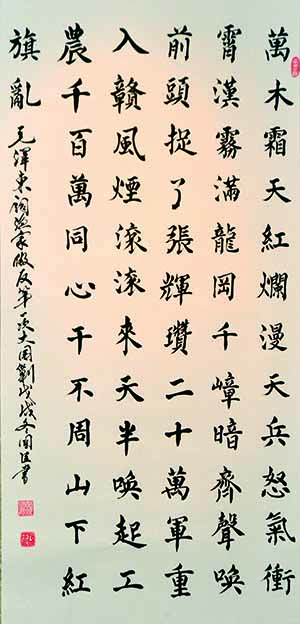 萬木霜天紅爛漫天兵怒氣衝
霄漢霧滿龍岡千嶂暗齊聲喚
前頭捉了張輝瓚二十萬軍重
入贛風煙滾滾來天半喚起工
農千百萬同心干不周山下紅
旗亂
毛澤東詞漁家傲反第一次大围剿戊戌冬国書